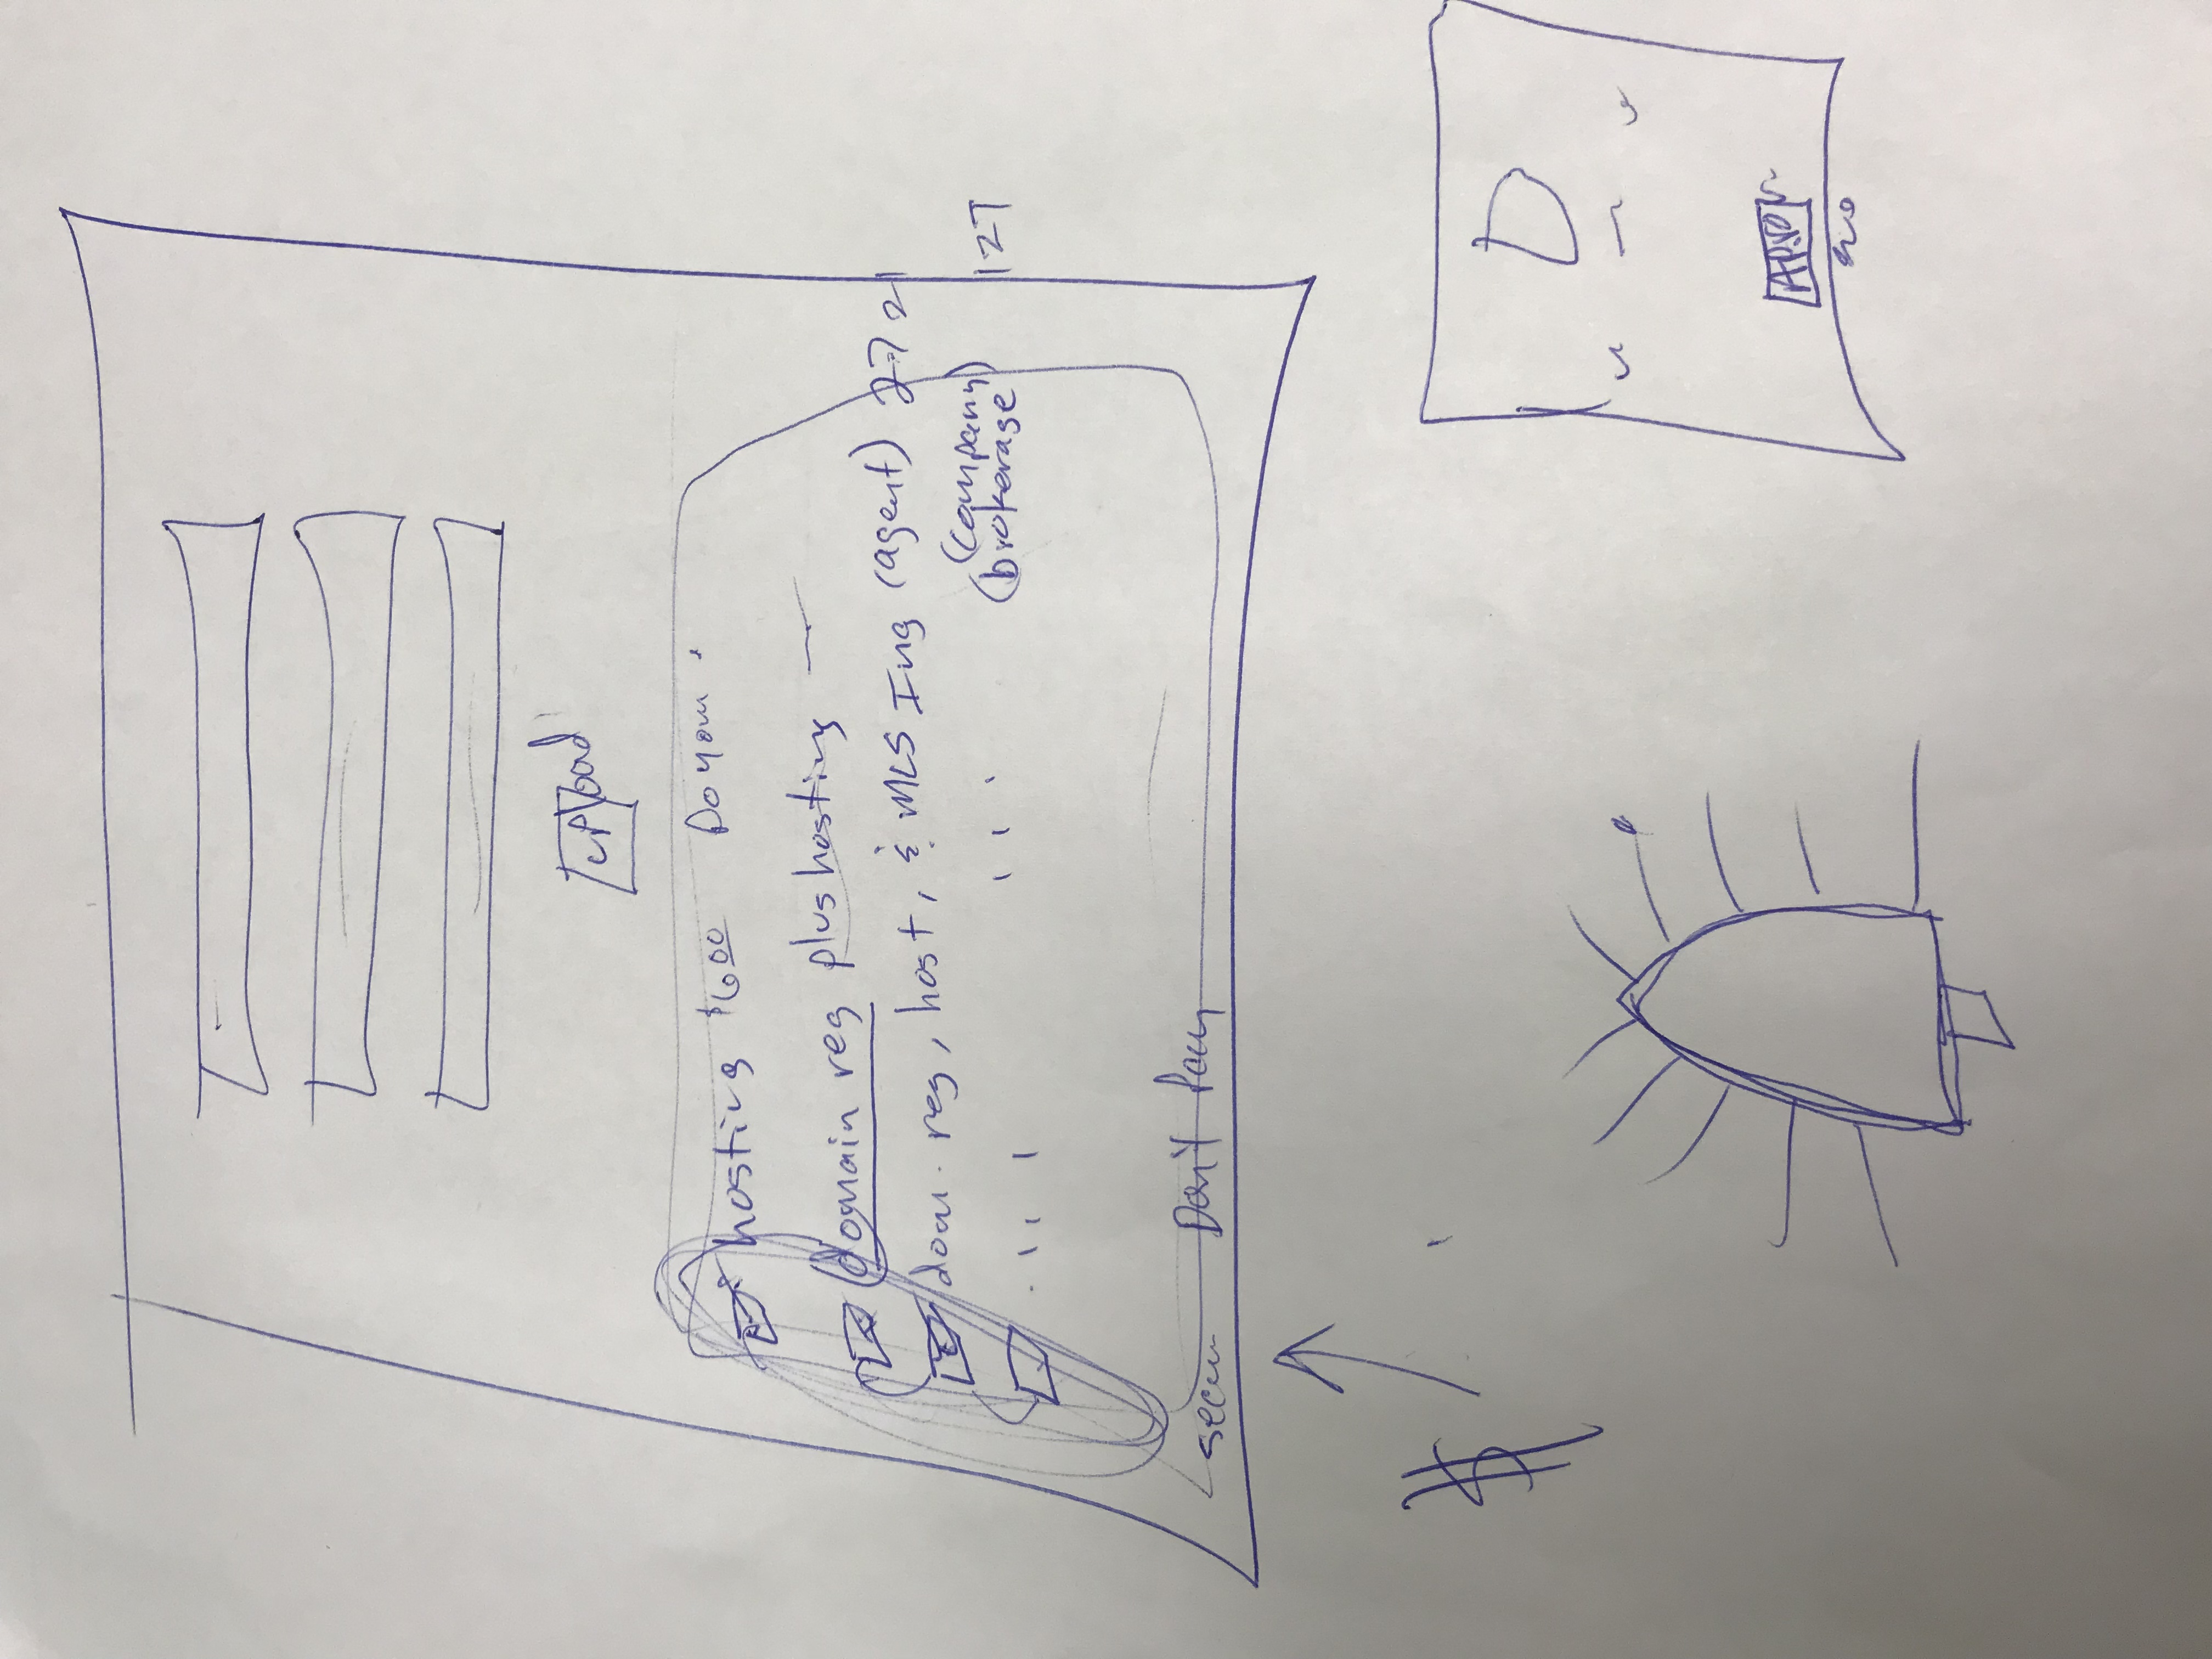 upload
hosting $600 Do you
domain reg plus hosting —
dom. reg, host, & MLS Ing (agent)
(company)
brokerage 127
Don't
$
D
no